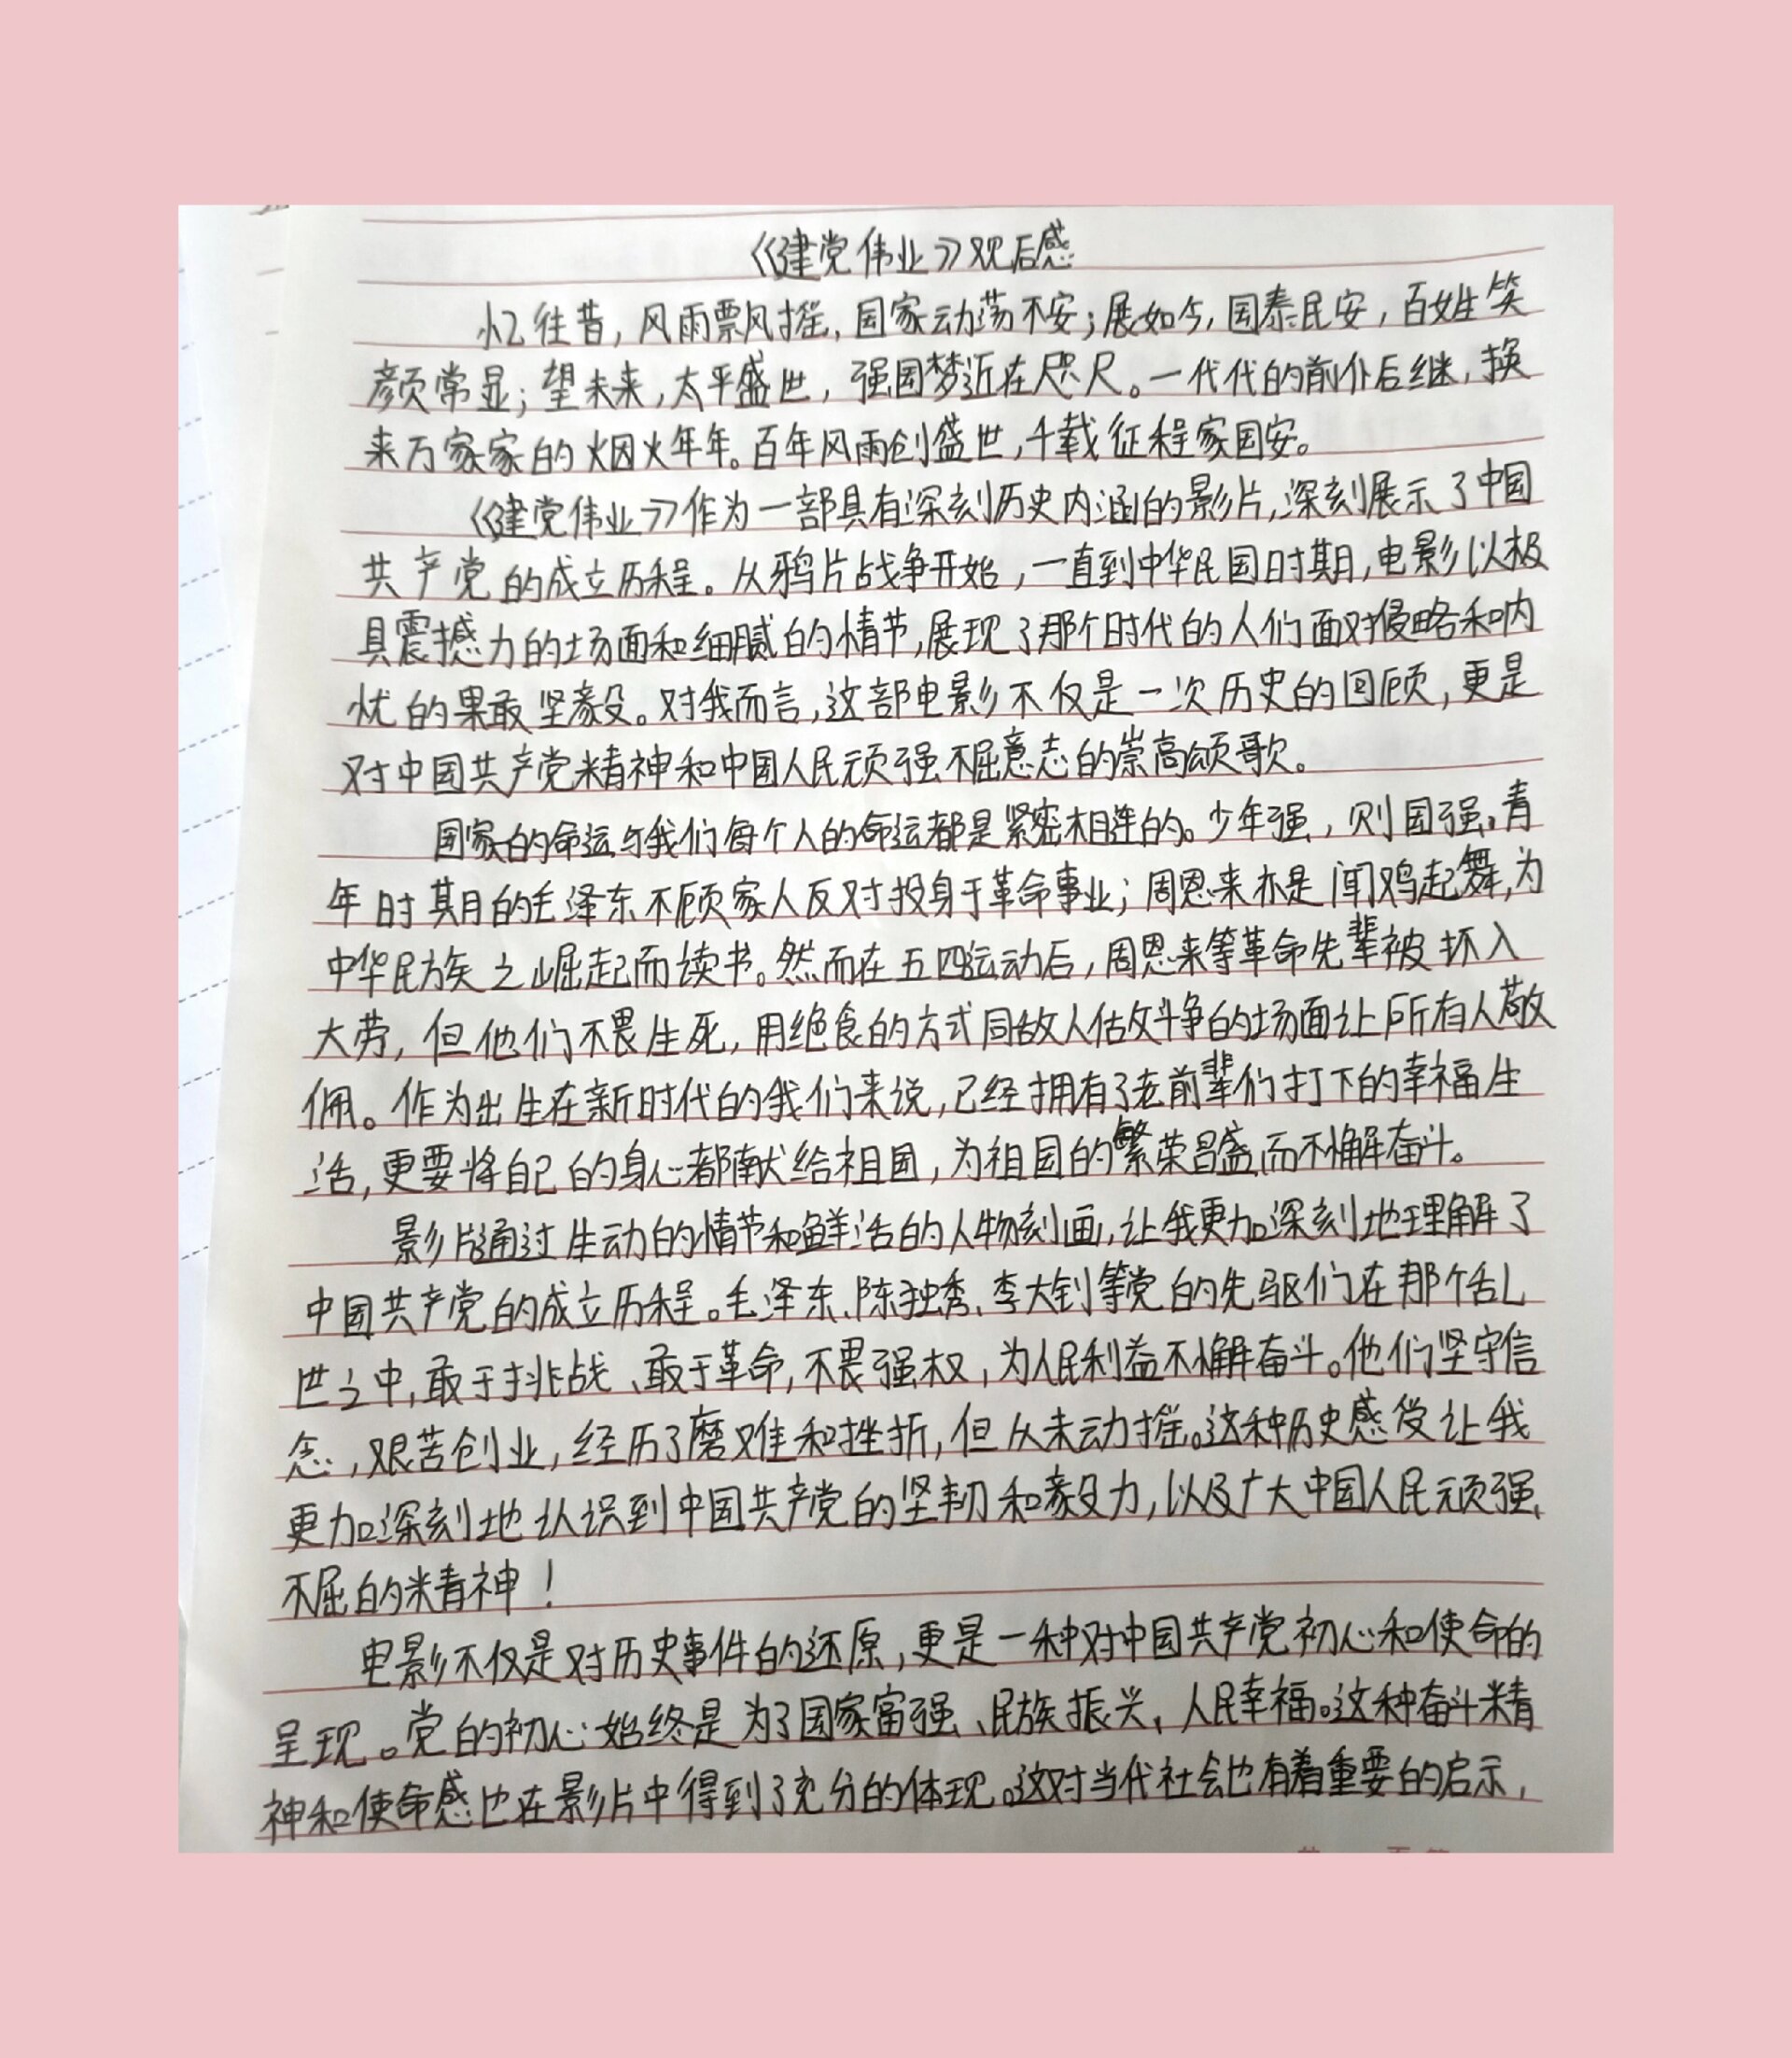 《建党伟业》观后感
忆往昔，风雨飘摇，国家动荡不安；展如今，国泰民安，百姓笑
颜常显；望未来，太平盛世，强国梦近在咫尺。一代代的前仆后继，换
来万家家的烟火年年。百年风雨创盛世，千载征程家国安。
《建党伟业》作为一部具有深刻历史内涵的影片，深刻展示了中国
共产党的成立历程。从鸦片战争开始，一直到中华民国时期，电影以极
具震撼力的场面和细腻的情节，展现了那个时代的人们面对侵略和内
忧的果敢坚毅。对我而言，这部电影不仅是一次历史的回顾，更是
对中国共产党精神和中国人民顽强不屈意志的崇高颂歌。
国家的命运与我们每个人的命运都是紧密相连的。少年强，则国强。青
年时期的毛泽东不顾家人反对投身于革命事业；周恩来亦是闻鸡起舞，为
中华民族之崛起而读书。然而在五四运动后，周恩来等革命先辈被抓入
大劳，但他们不畏生死，用绝食的方式同敌人做斗争的场面让所有人敬
佩。作为出生在新时代的我们来说，已经拥有了老前辈们打下的幸福生
活，更要将自己的身心都献给祖国，为祖国的繁荣昌盛而不懈奋斗。
影片通过生动的情节和鲜活的人物刻画，让我更加深刻地理解了
中国共产党的成立历程。毛泽东、陈独秀、李大钊等党的先驱们在那个乱
世之中，敢于挑战、敢于革命，不畏强权，为人民利益不懈奋斗。他们坚守信
念，艰苦创业，经历了磨难和挫折，但从未动摇。这种历史感受让我
更加深刻地认识到中国共产党的坚韧和毅力，以及广大中国人民顽强、
不屈的精神！
电影不仅是对历史事件的还原，更是一种对中国共产党初心和使命的
呈现。党的初心始终是为了国家富强、民族振兴、人民幸福。这种奋斗精
神和使命感也在影片中得到了充分的体现。这对当代社会也有着重要的启示，